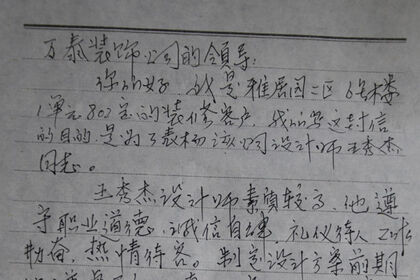 万泰装饰公司的领导:
你们好,我是雅居园二区6号楼
1单元802室的装修客户,我所写这封信
的目的是为了表扬该公司设计师王秀杰
同志。
王秀杰设计师素质较高,他遵
守职业道德,诚信自律,礼仪待人,工作
勤奋,热情待客。制定设计方案前期